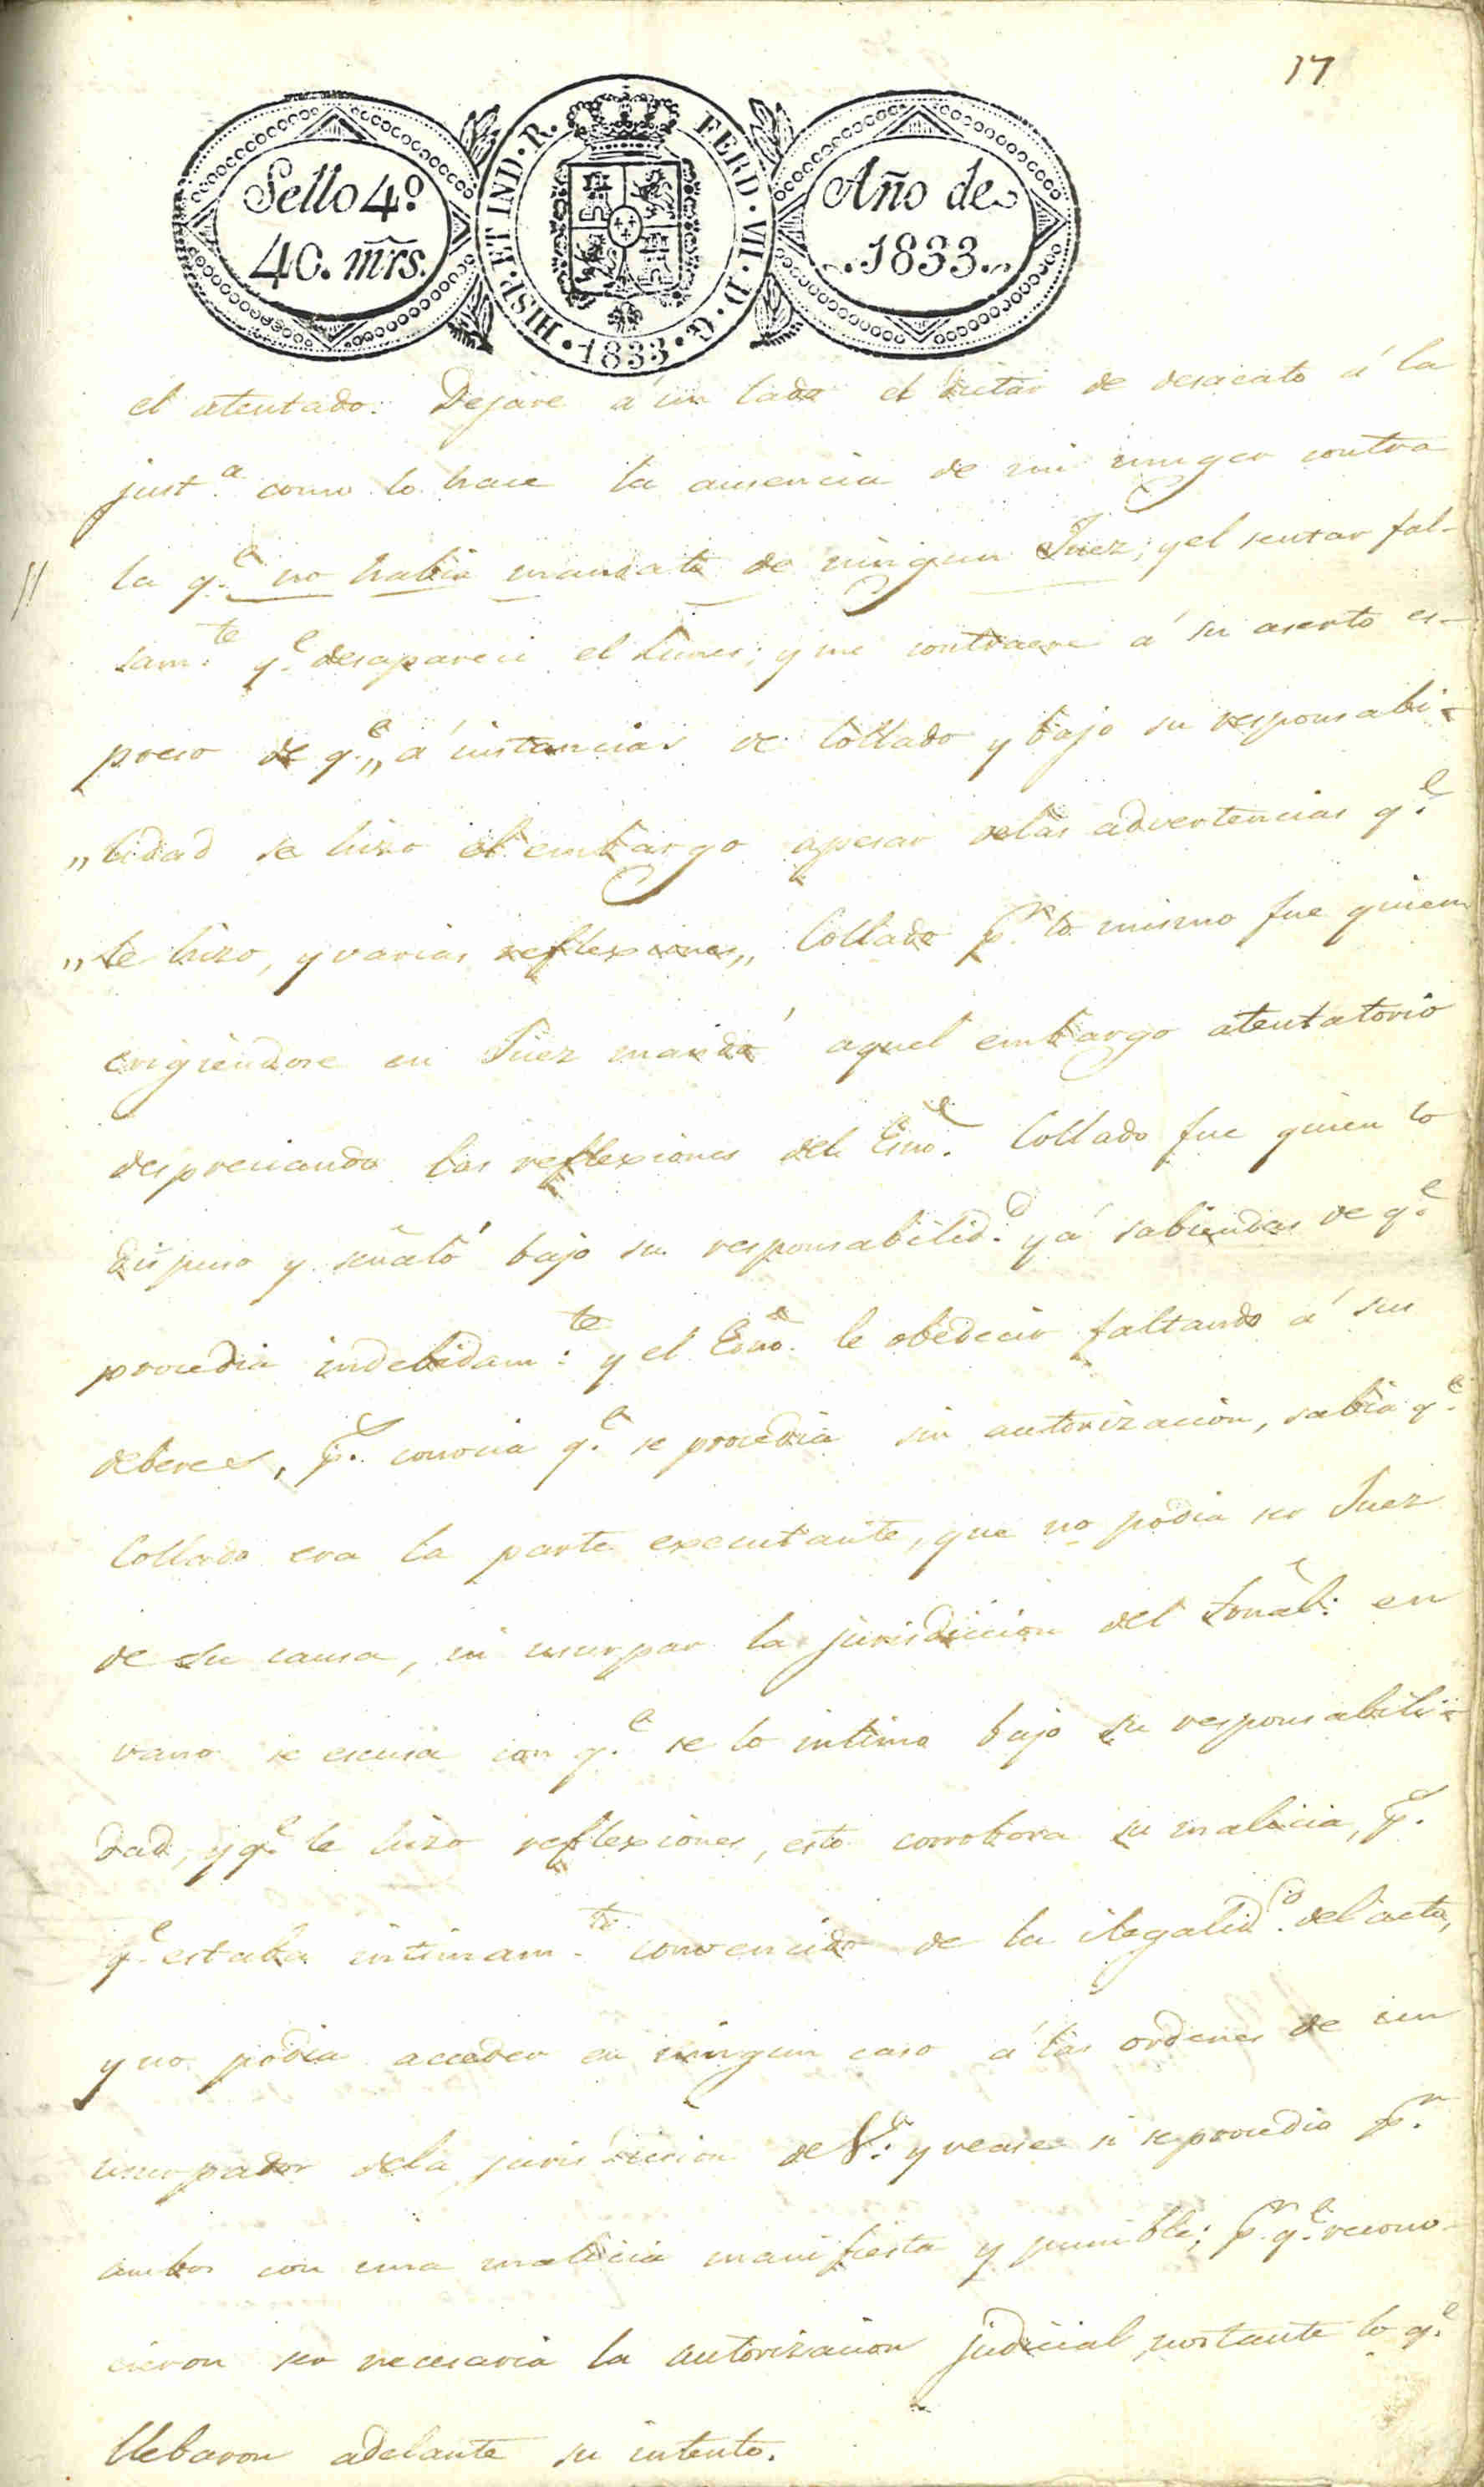 17
Sello 4º
40. mrs.
HISP. ET IND. R. FERD. VII. D. G. 1833.
Año de
1833.
el atentado. Dejare á un lado el dictar de desacato á la
just.ª como lo hace la ausencia de mi muger contra
la q.e no habia mandato de ningun Juez; y el sentar fal-
sam.te q.e desapareci el Lunes; y me contraere á su aserto es-
preso de q.e „ á instancias de Collado y bajo su responsabi-
„ lidad se hizo el embargo apesar delas advertencias q.e
„ le hizo, y varias reflexiones „ Collado p.r lo mismo fue quien
erigiendose en Juez mandó aquel embargo atentatorio
despreciando las reflexiones del Esno. Collado fue quien lo
dispuso y señaló bajo su responsabilid.d y á sabiendas de q.e
procedia indebidam.te y el Esno. le obedecio faltando á sus
deberes, p.s conocia q.e se procedia sin autorizacion, sabia q.e
Collado era la parte executante, que no podia ser Juez
de su causa, ni usurpar la jurisdiccion del Tral: en
vano se escusa con q.e se lo intimo bajo su responsabili-
dad, y q.e le hizo reflexiones, esto corrobora su malicia, p.s
q.e estaba intimam.te convencido de la ilegalid.d del acto,
y no podia acceder en ningun caso á las ordenes de un
usurpador dela jurisdiccion de V.: y vease si se procedio p.r
ambos con una malicia manifiesta y punible; p.r q.e recono-
cieron ser necesaria la autorizacion judicial, nostante lo q.e
llebaron adelante su intento.